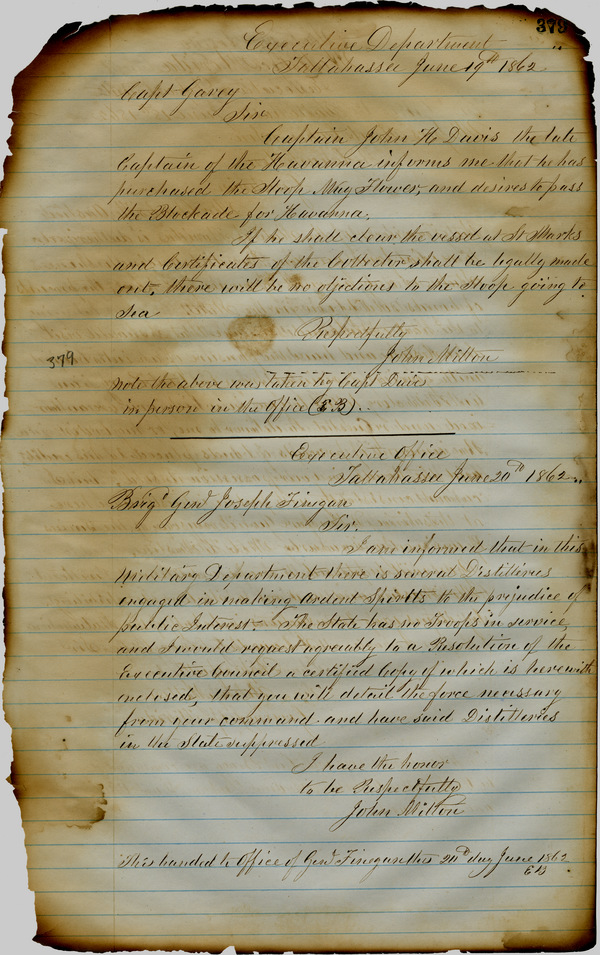 379
Executive Department
Tallahassee June 19th 1862
Capt Gavey
Sir
Captain John H Davis the late
Captain of the Havanna informs me that he has
purchased the Sloop May Flower, and desires to pass
the Blockade for Havanna.
If he shall clear the vessel at St Marks
and Certificates of the Collector shall be legally made
out, there will be no objections to the Sloop going to
Sea
Respectfully
John Milton
379
note the above was taken by Capt
in person in the Office (E B)
Executive Office
Tallahassee June 20th 1862
Brigd Genl Joseph Finegan
Sir.
I am informed that in this
Military Department there is several Distilleries
engaged in making Ardent Spirits to the prejudice of
public Interest. The State has no Troops in service,
and I would request agreeably to a Resolution of the
Executive Council a certified Copy of which is herewith
enclosed, that you will detail the force necessary
from your command and have said Distilleries
in the State suppressed
I have the honor
to be Respectfully
John Milton
This handed to Office of Genl Finegan this 20th day June 1862
E B